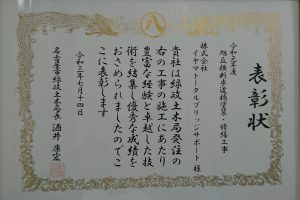 八
表彰状
令和三年度
旭丘横断歩道橋塗装・修繕工事
株式会社
イヤマトータルブリッジサポート 様
貴社は緑政土木局発注の
右の工事の施工にあたり
豊富な経験と卓越した技
術を結集し優秀な成績を
おさめられましたのでこ
こに表彰します
令和三年七月十四日
名古屋市緑政土木局長 酒井康宏